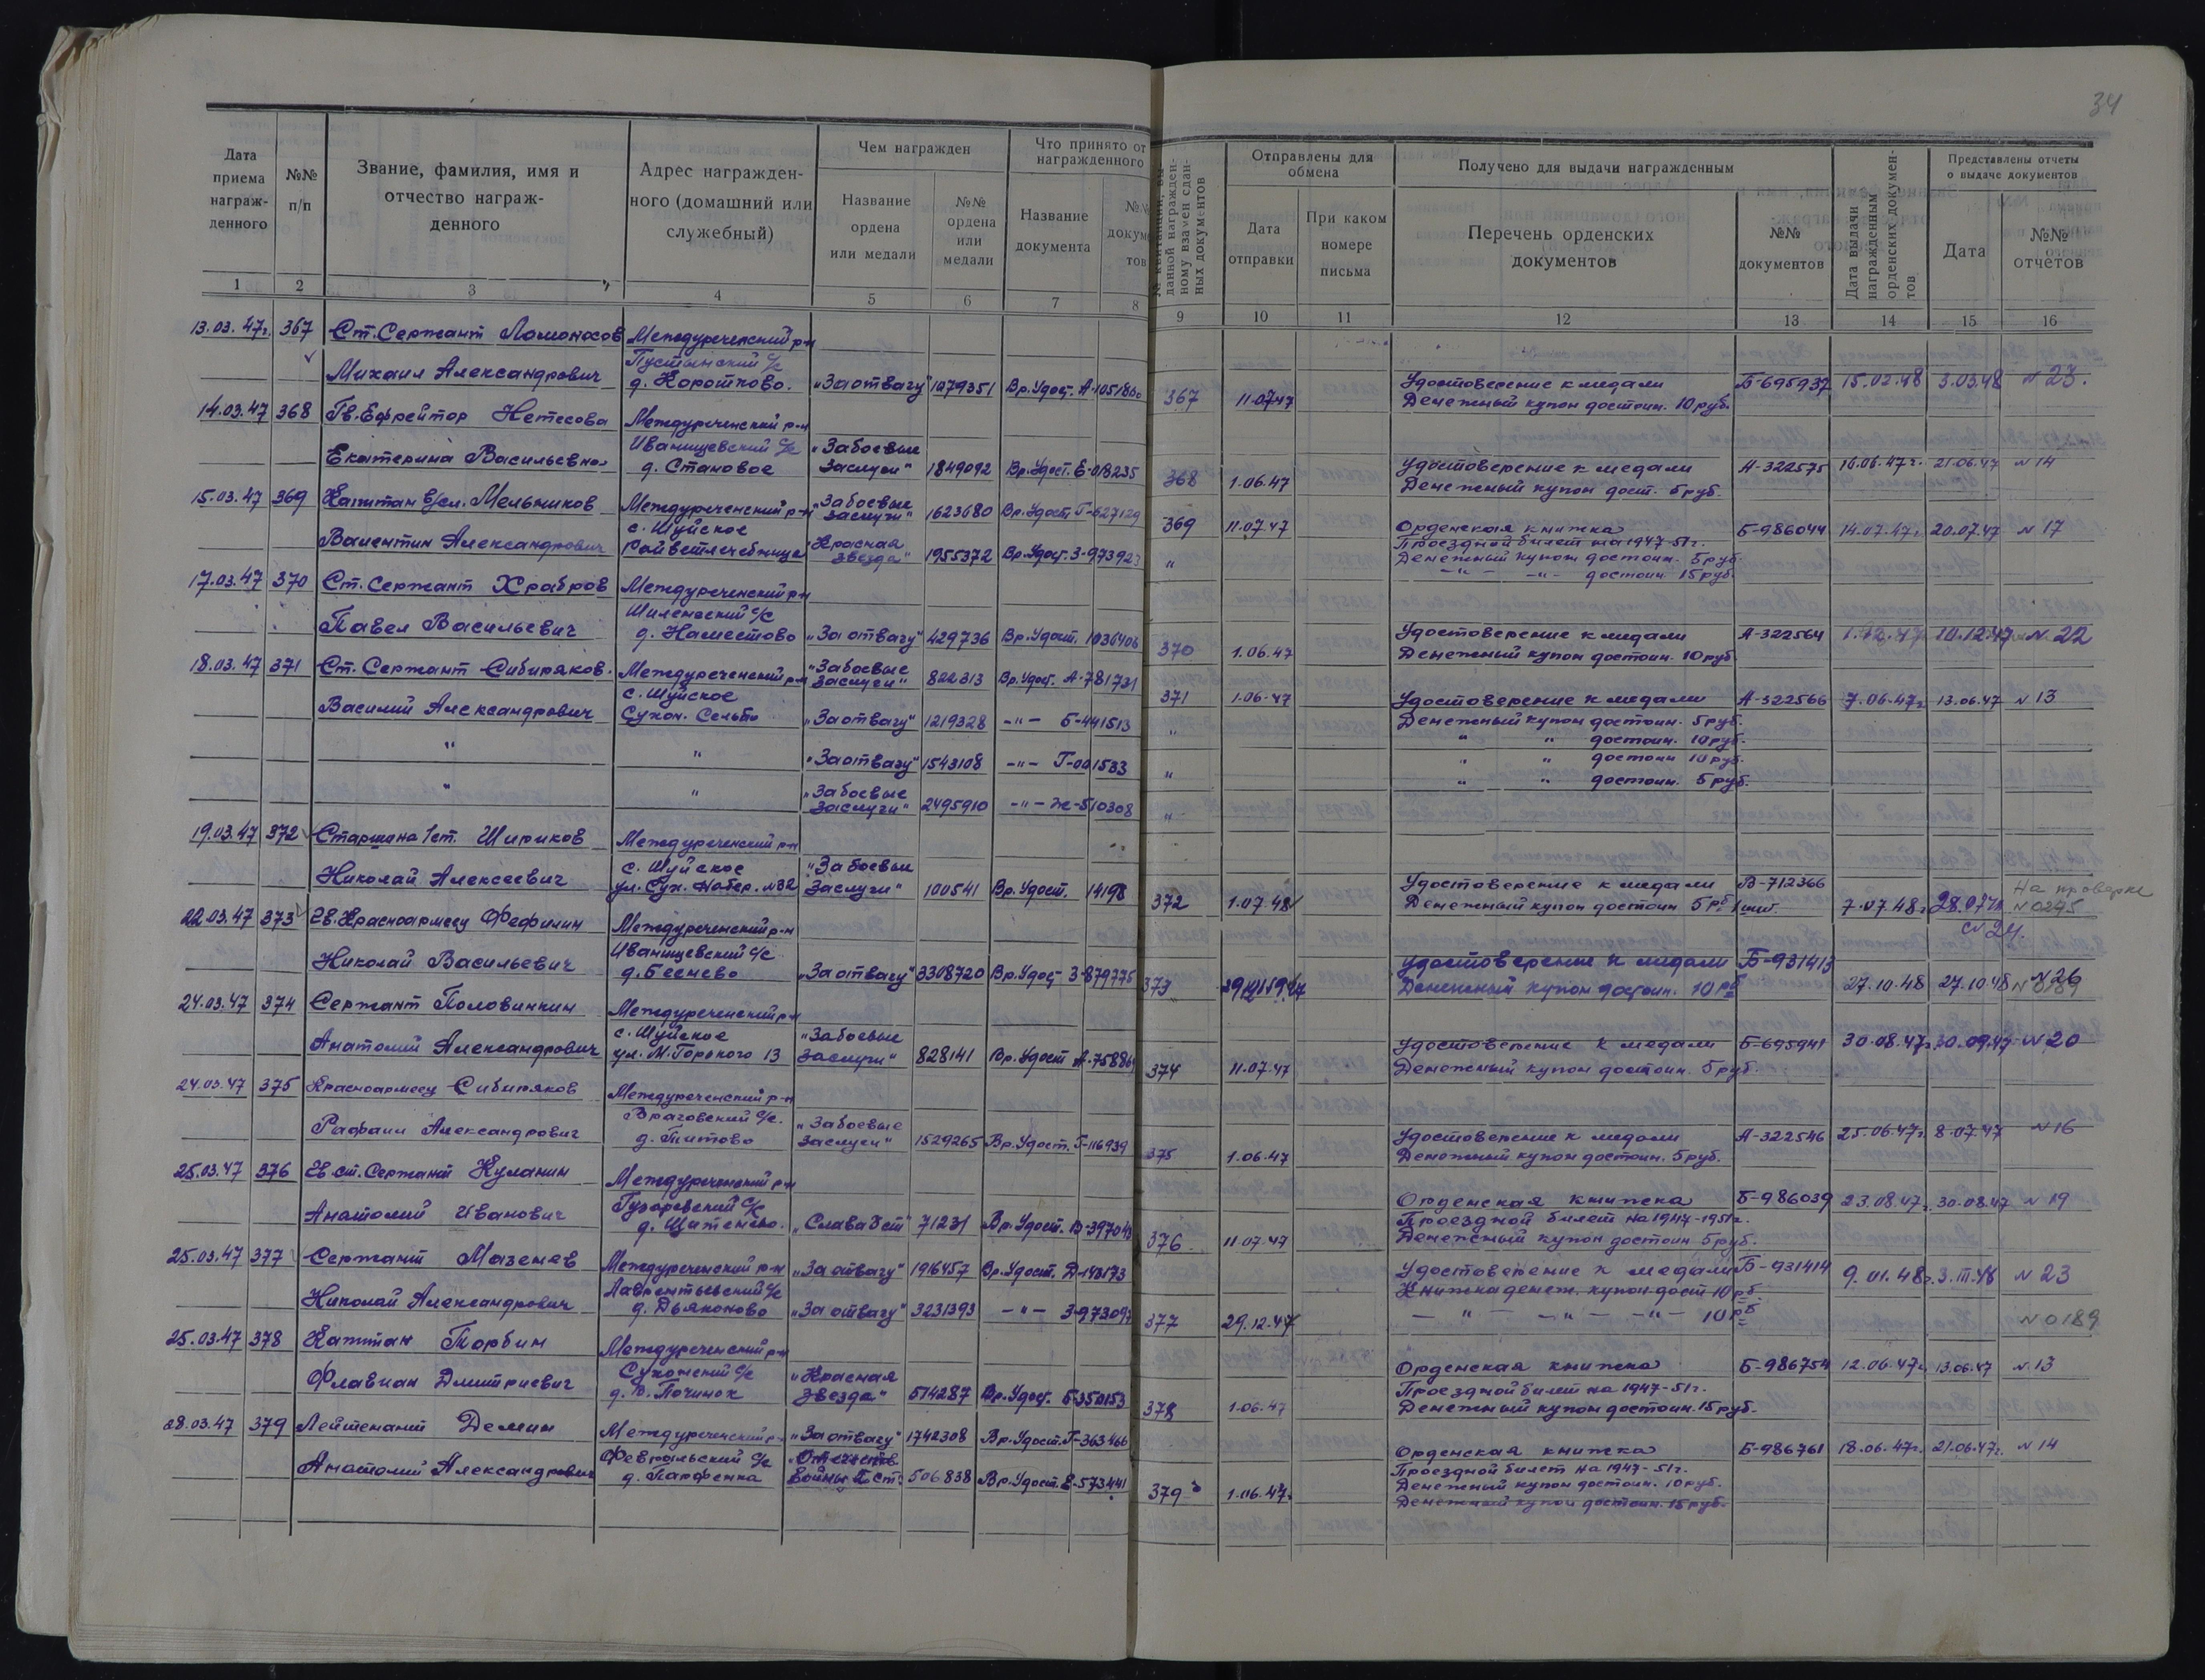 34
Дата приема награж-денного
№№ п/п
Звание, фамилия, имя и отчество награж-денного
Адрес награжден-ного (домашний или служебный)
Чем награжден
Название ордена или медали
№№ ордена или медали
Что принято от награжденного
Название документа
Отправлены для обмена
Дата отправки
При каком номере письма
Получено для выдачи награжденным
Перечень орденских документов
№№ документов
Дата выдачи награжденным орденских докумен-тов
Представлены отчеты о выдаче документов
Дата
№№ отчетов
1 2 3 4 5 6 7 8 9 10 11 12 13 14 15 16
13.03.47г. 367 Ст. Сержант Ломоносов Междуреченский р-н
Пустынский с/с
Михаил Александрович д. Коротково. „За отвагу" 1079351 Вр. Удост. 367 11.07.47 Удостоверение к медали Б-695937 15.02.48 3.03.48 №23.
Денежный купон достоин. 10 руб.
14.03.47 368 Гв. Ефрейтор Нетесова Междуреченский р-н
Иванищевский с/с „За боевые
Екатерина Васильевна д. Становое заслуги" 1849092 Вр. Удост. Е-018235 368 1.06.47 Удостоверение к медали А-322575 16.06.47г. 21.06.47 №14
Денежный купон дост. 5 руб.
15.03.47 369 Капитан в/сл. Мельников Междуреченский р-н „За боевые заслуги" 1623680 Вр. Удост. Г-627129 369 11.07.47 Орденская книжка Б-986044 14.07.47г. 20.07.47 №17
с. Шуйское Проездной билет на 1947-51г.
Валентин Александрович Райветлечебница „Красная звезда" 1955372 Вр. Удост. З-973923 " Денежный купон достоин. 5 руб.
-"- -"- достоин. 15 руб.
17.03.47 370 Ст. Сержант Храбров Междуреченский р-н
Шиленгский с/с
Павел Васильевич д. Наместово „За отвагу" 429736 Вр. Удост. 1036406 370 1.06.47 Удостоверение к медали А-322564 1.12.47 10.12.47 №22
Денежный купон достоин. 10 руб.
18.03.47 371 Ст. Сержант Сибиряков. Междуреченский р-н „За боевые заслуги" 822313 Вр. Удост. А-781731 371 1.06.47 Удостоверение к медали А-322566 7.06.47г. 13.06.47 №13
с. Шуйское
Василий Александрович Сухон. Сельпо „За отвагу" 1219328 -"- Б-441513 " Денежный купон достоин. 5 руб.
" " достоин. 10 руб.
" " „За отвагу" 1543108 -"- Г-001533 " " " достоин 10 руб.
" " достоин. 5 руб.
" " „За боевые заслуги" 2495910 -"- Ж-510308 "
19.03.47 372 Старшина 1 ст. Шириков Междуреченский р-н
с. Шуйское „За боевые
Николай Алексеевич ул. Сух. Набер. №32 заслуги" 100541 Вр. Удост. 14198 372 1.07.48 Удостоверение к медали В-712366 На проверке
Денежный купон достоин 5 рб 1 шт. 7.07.48г №0245
№24.
22.03.47 373 Гв. Красноармеец Фефилин Междуреченский р-н
Иванищевский с/с
Николай Васильевич д. Беснево „За отвагу" 3308720 Вр. Удост З-879775 373 Удостоверение к медали Б-931413
Денежный купон достоин. 10 рб 27.10.48 27.10.48 №26
№0189
24.03.47 374 Сержант Половинкин Междуреченский р-н
с. Шуйское „За боевые
Анатолий Александрович ул. М. Горького 13 заслуги" 828141 Вр. Удост 374 11.07.47 Удостоверение к медали Б-695941 30.08.47г. 30.09.47 №20
Денежный купон достоин. 5 руб.
24.03.47 375 Красноармеец Сибиряков Междуреченский р-н
Враговский с/с. „За боевые
Рафаил Александрович д. Титово заслуги" 1529265 Вр. Удост. Г-116939 375 1.06.47 Удостоверение к медали А-322546 25.06.47г. 8.07.47 №16
Денежный купон достоин. 5 руб.
25.03.47 376 Гв. ст. Сержант Куланин Междуреченский р-н
Анатолий Иванович „Слава 71231 Вр. Удост. 376 11.07.47 Орденская книжка Б-986039 23.08.47г. 30.08.47 №19
Проездной билет на 1947-1951г.
Денежный купон достоин 5 руб.
25.03.47 377 Сержант Мазенев Междуреченский р-н „За отвагу" 1916457 Вр. Удост. Д-143173 Удостоверение к медали Б-931414 9.01.48г. 3.III.48 №23
Лаврентьевский с/с Книжка денеж. купон дост 10 рб.
Николай Александрович д. Дьяконово „За отвагу" 3231393 -"- 377 29.12.47 - " - -"- -"- 10 рб №0189
25.03.47 378 Капитан Торбин Междуреченский р-н
Сухонский с/с „Красная
Флавиан Дмитриевич д. В. Починок звезда" 514287 Вр. Удост. Б-350153 378 1.06.47 Орденская книжка Б-986754 12.06.47г. 13.06.47 №13
Проездной билет на 1947-51г.
Денежный купон достоин. 15 руб.
28.03.47 379 Лейтенант Демин Междуреченский р- „За отвагу" 1742308 Вр. Удост. Г-363466
Февральский с/с „Отечеств
Анатолий Александрович д. Парфенка войны II ст. 506838 Вр. Удост. Е-573441 379 1.06.47г. Орденская книжка Б-986761 18.06.47г. 21.06.47г. №14
Проездной билет на 1947-51г.
Денежный купон достоин. 10 руб.
Денежный купон достоин. 15 руб.